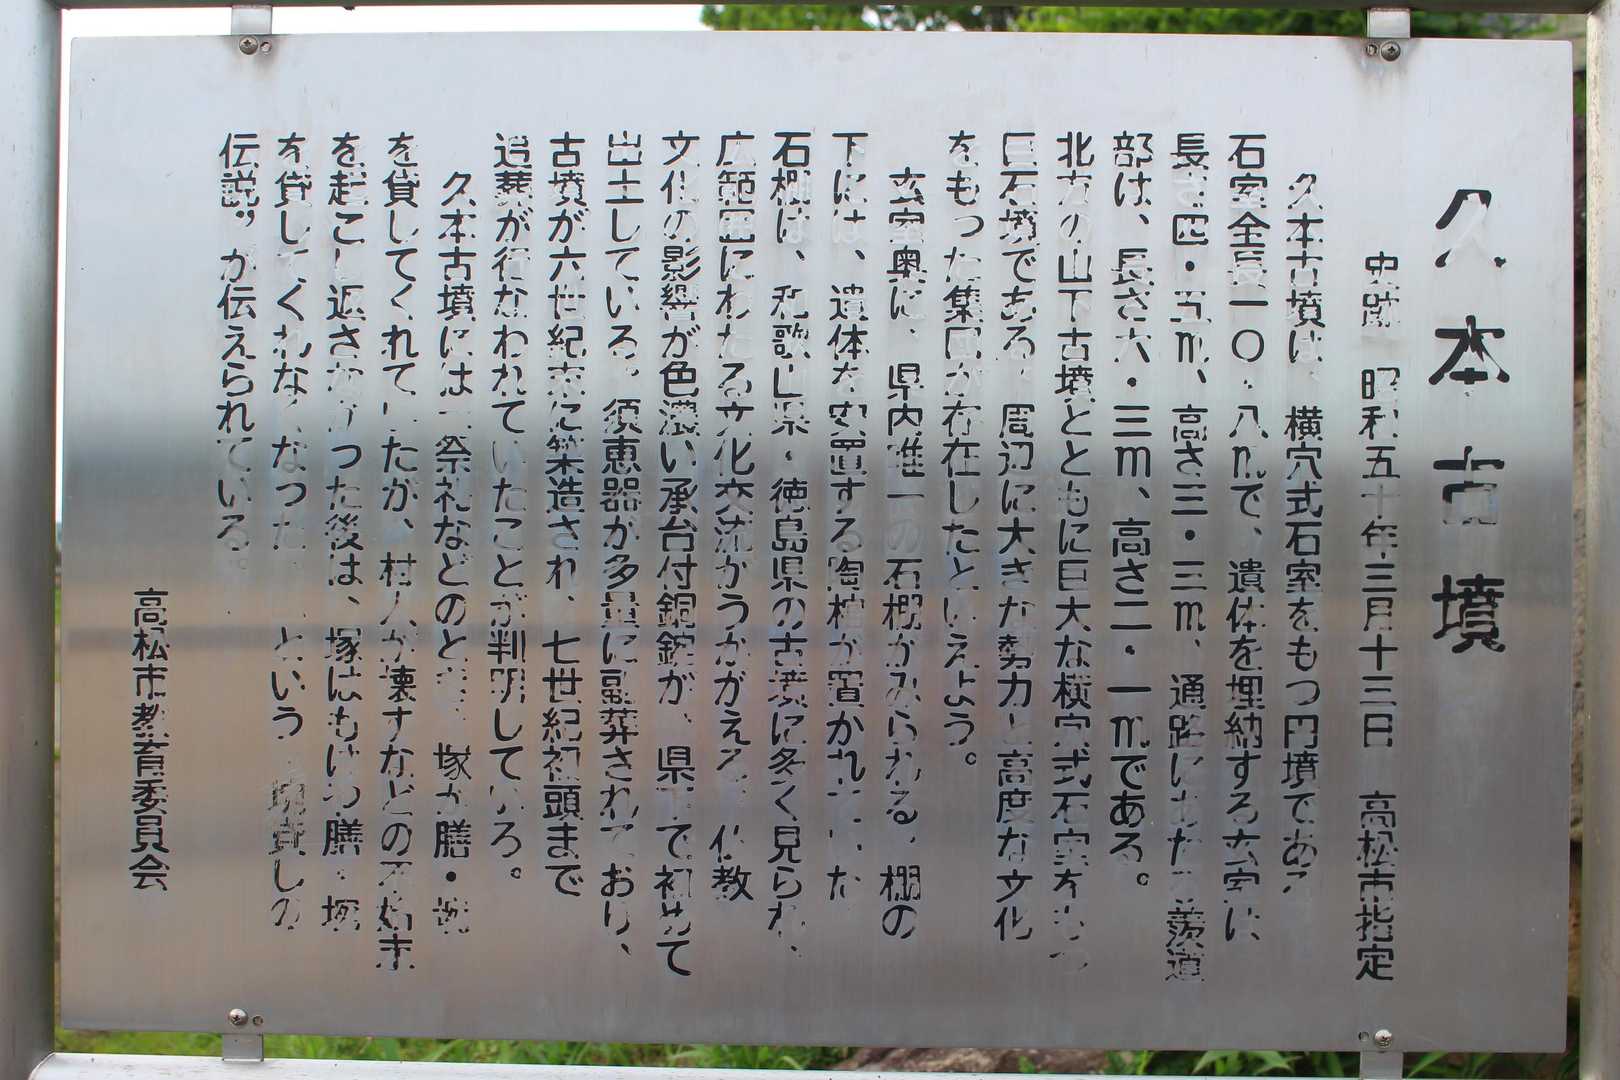 久本古墳
史跡　昭和五十年三月十三日　高松市指定
久本古墳は、横穴式石室をもつ円墳である
石室全長一〇・八mで、遺体を埋納する玄室は
長さ四・五m、高さ三・三m、通路にあたる羨道
部は、長さ六・三m、高さ二・一mである。
北方の山下古墳とともに巨大な横穴式石室をもつ
巨石墳である。周辺に大きな勢力と高度な文化
をもった集団が存在したといえよう。
玄室奥に、県内唯一の石棚がみられる。棚の
下には、遺体を安置する陶棺が置かれていた
石棚は、和歌山県・徳島県の古墳に多く見られ、
広範囲にわたる文化交流がうかがえる。仏教
文化の影響が色濃い承台付銅鋺が、県下で初めて
出土している。須恵器が多量に副葬されており、
古墳が六世紀末に築造され、七世紀初頭まで
追葬が行なわれていたことが判明している。
久本古墳には〝祭礼などのとき、塚が膳・椀
を貸してくれていたが、村人が壊すなどの不始末
を起こし返さなかった後は、塚はもはや膳・椀
を貸してくれなくなった〟という〝椀貸しの
伝説〟が伝えられている。
高松市教育委員会